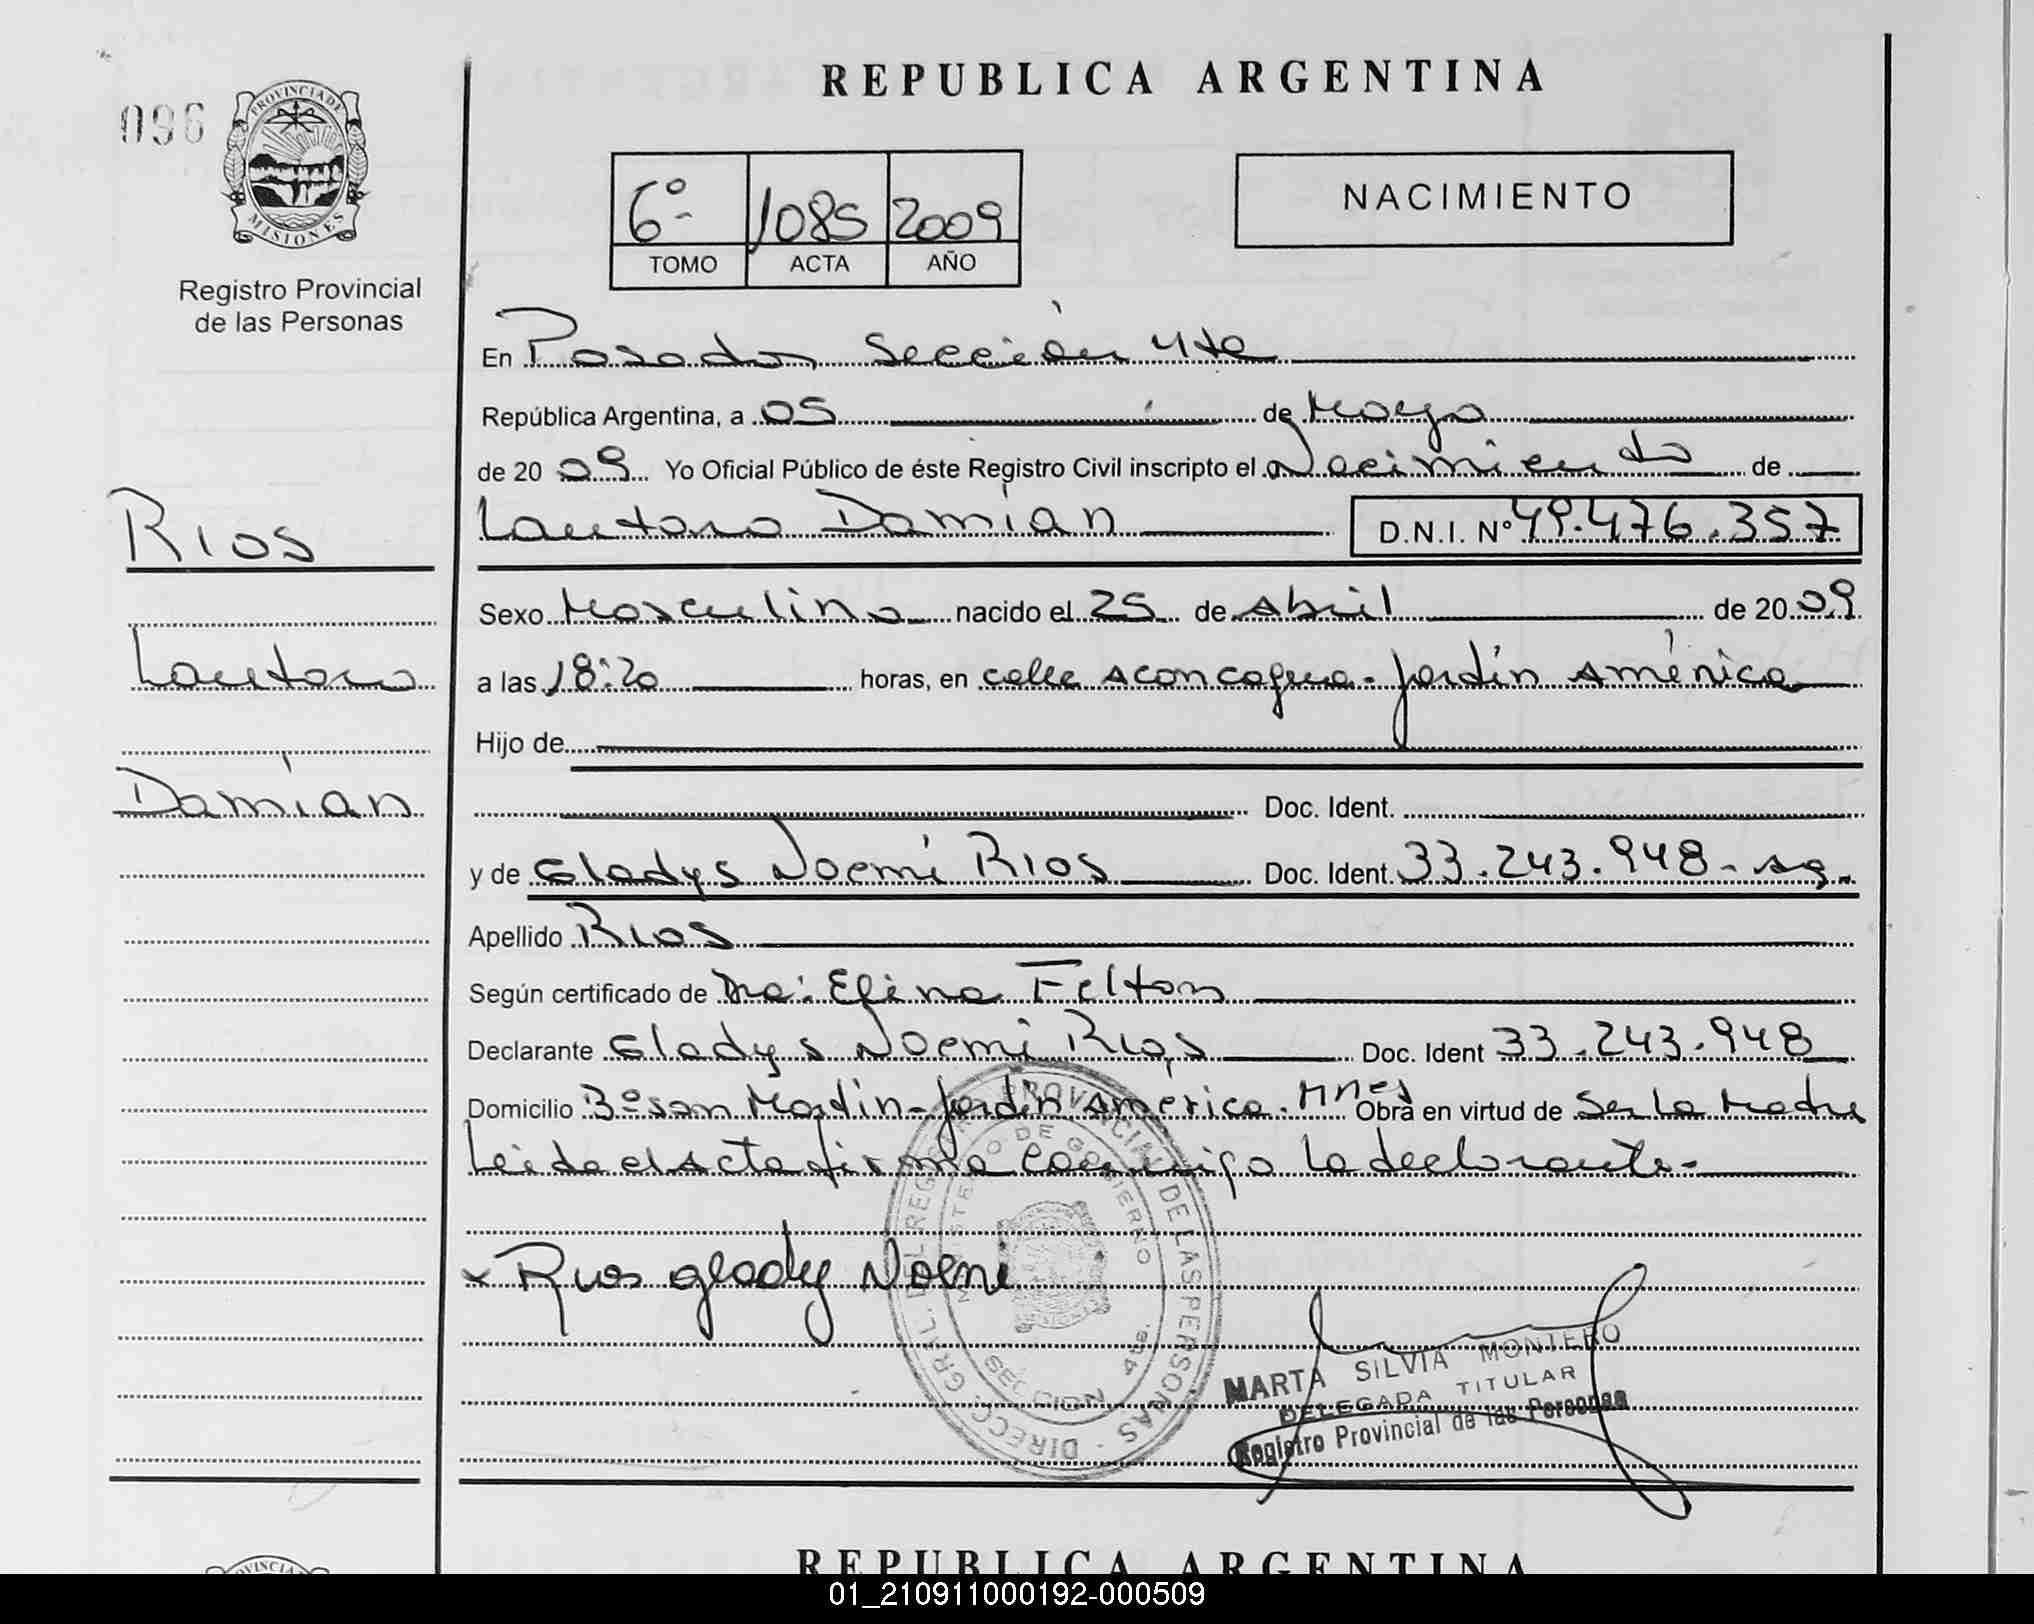 REPUBLICA ARGENTINA
096
PROVINCIA DE
MISIONES
Registro Provincial
de las Personas
6º 1085 2009
TOMO ACTA AÑO
NACIMIENTO
En Posadas, Sección 4ta
República Argentina, a 05 de Mayo
de 20 09 Yo Oficial Público de éste Registro Civil inscripto el Nacimiento de
Lautaro Damián D.N.I. Nº 49.476.357
Rios
Lautaro
Damián
Sexo Masculino nacido el 25 de Abril de 20 09
a las 18:20 horas, en calle Aconcagua - Jardín América
Hijo de
Doc. Ident.
y de Gladys Noemí Rios Doc. Ident. 33.243.948 - Ag.
Apellido Rios
Según certificado de Dra: Elina Felton
Declarante Gladys Noemi Rios Doc. Ident 33.243.948
Domicilio Bº San Martín - Jardín América. Mnes Obra en virtud de Ser la Madre
Leida el Acta firma conmigo la declarante -
x Rios glady Noemi
DIRECC. GRAL. DEL REGISTRO PROVINCIAL DE LAS PERSONAS
MINISTERIO DE GOBIERNO
MISIONES
SECCION 4ta.
MARTA SILVIA MONTERO
DELEGADA TITULAR
Registro Provincial de las Personas
REPUBLICA ARGENTINA
01_210911000192-000509